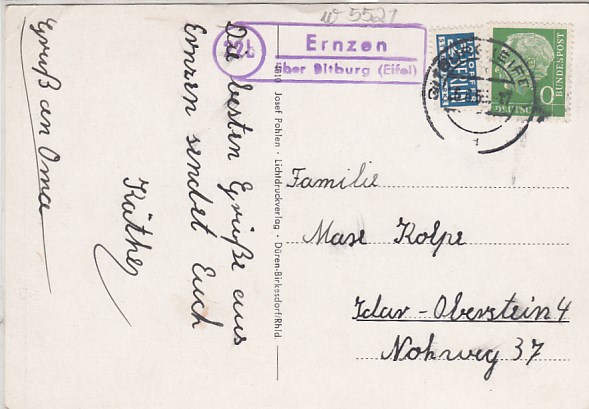 w 5521
22b
Ernzen
über Bitburg (Eifel)
NOTOPFER
2 BERLIN
DEUTSCHE BUNDESPOST
10
Die besten Grüße aus
Ernzen sendet Euch
Käthe
Gruß an Oma
Foto Josef Pohlen · Lichtdruckverlag · Düren-Birkesdorf/Rhld.
Familie
Max Kolpe
Idar-Oberstein 4
Nohweg 37